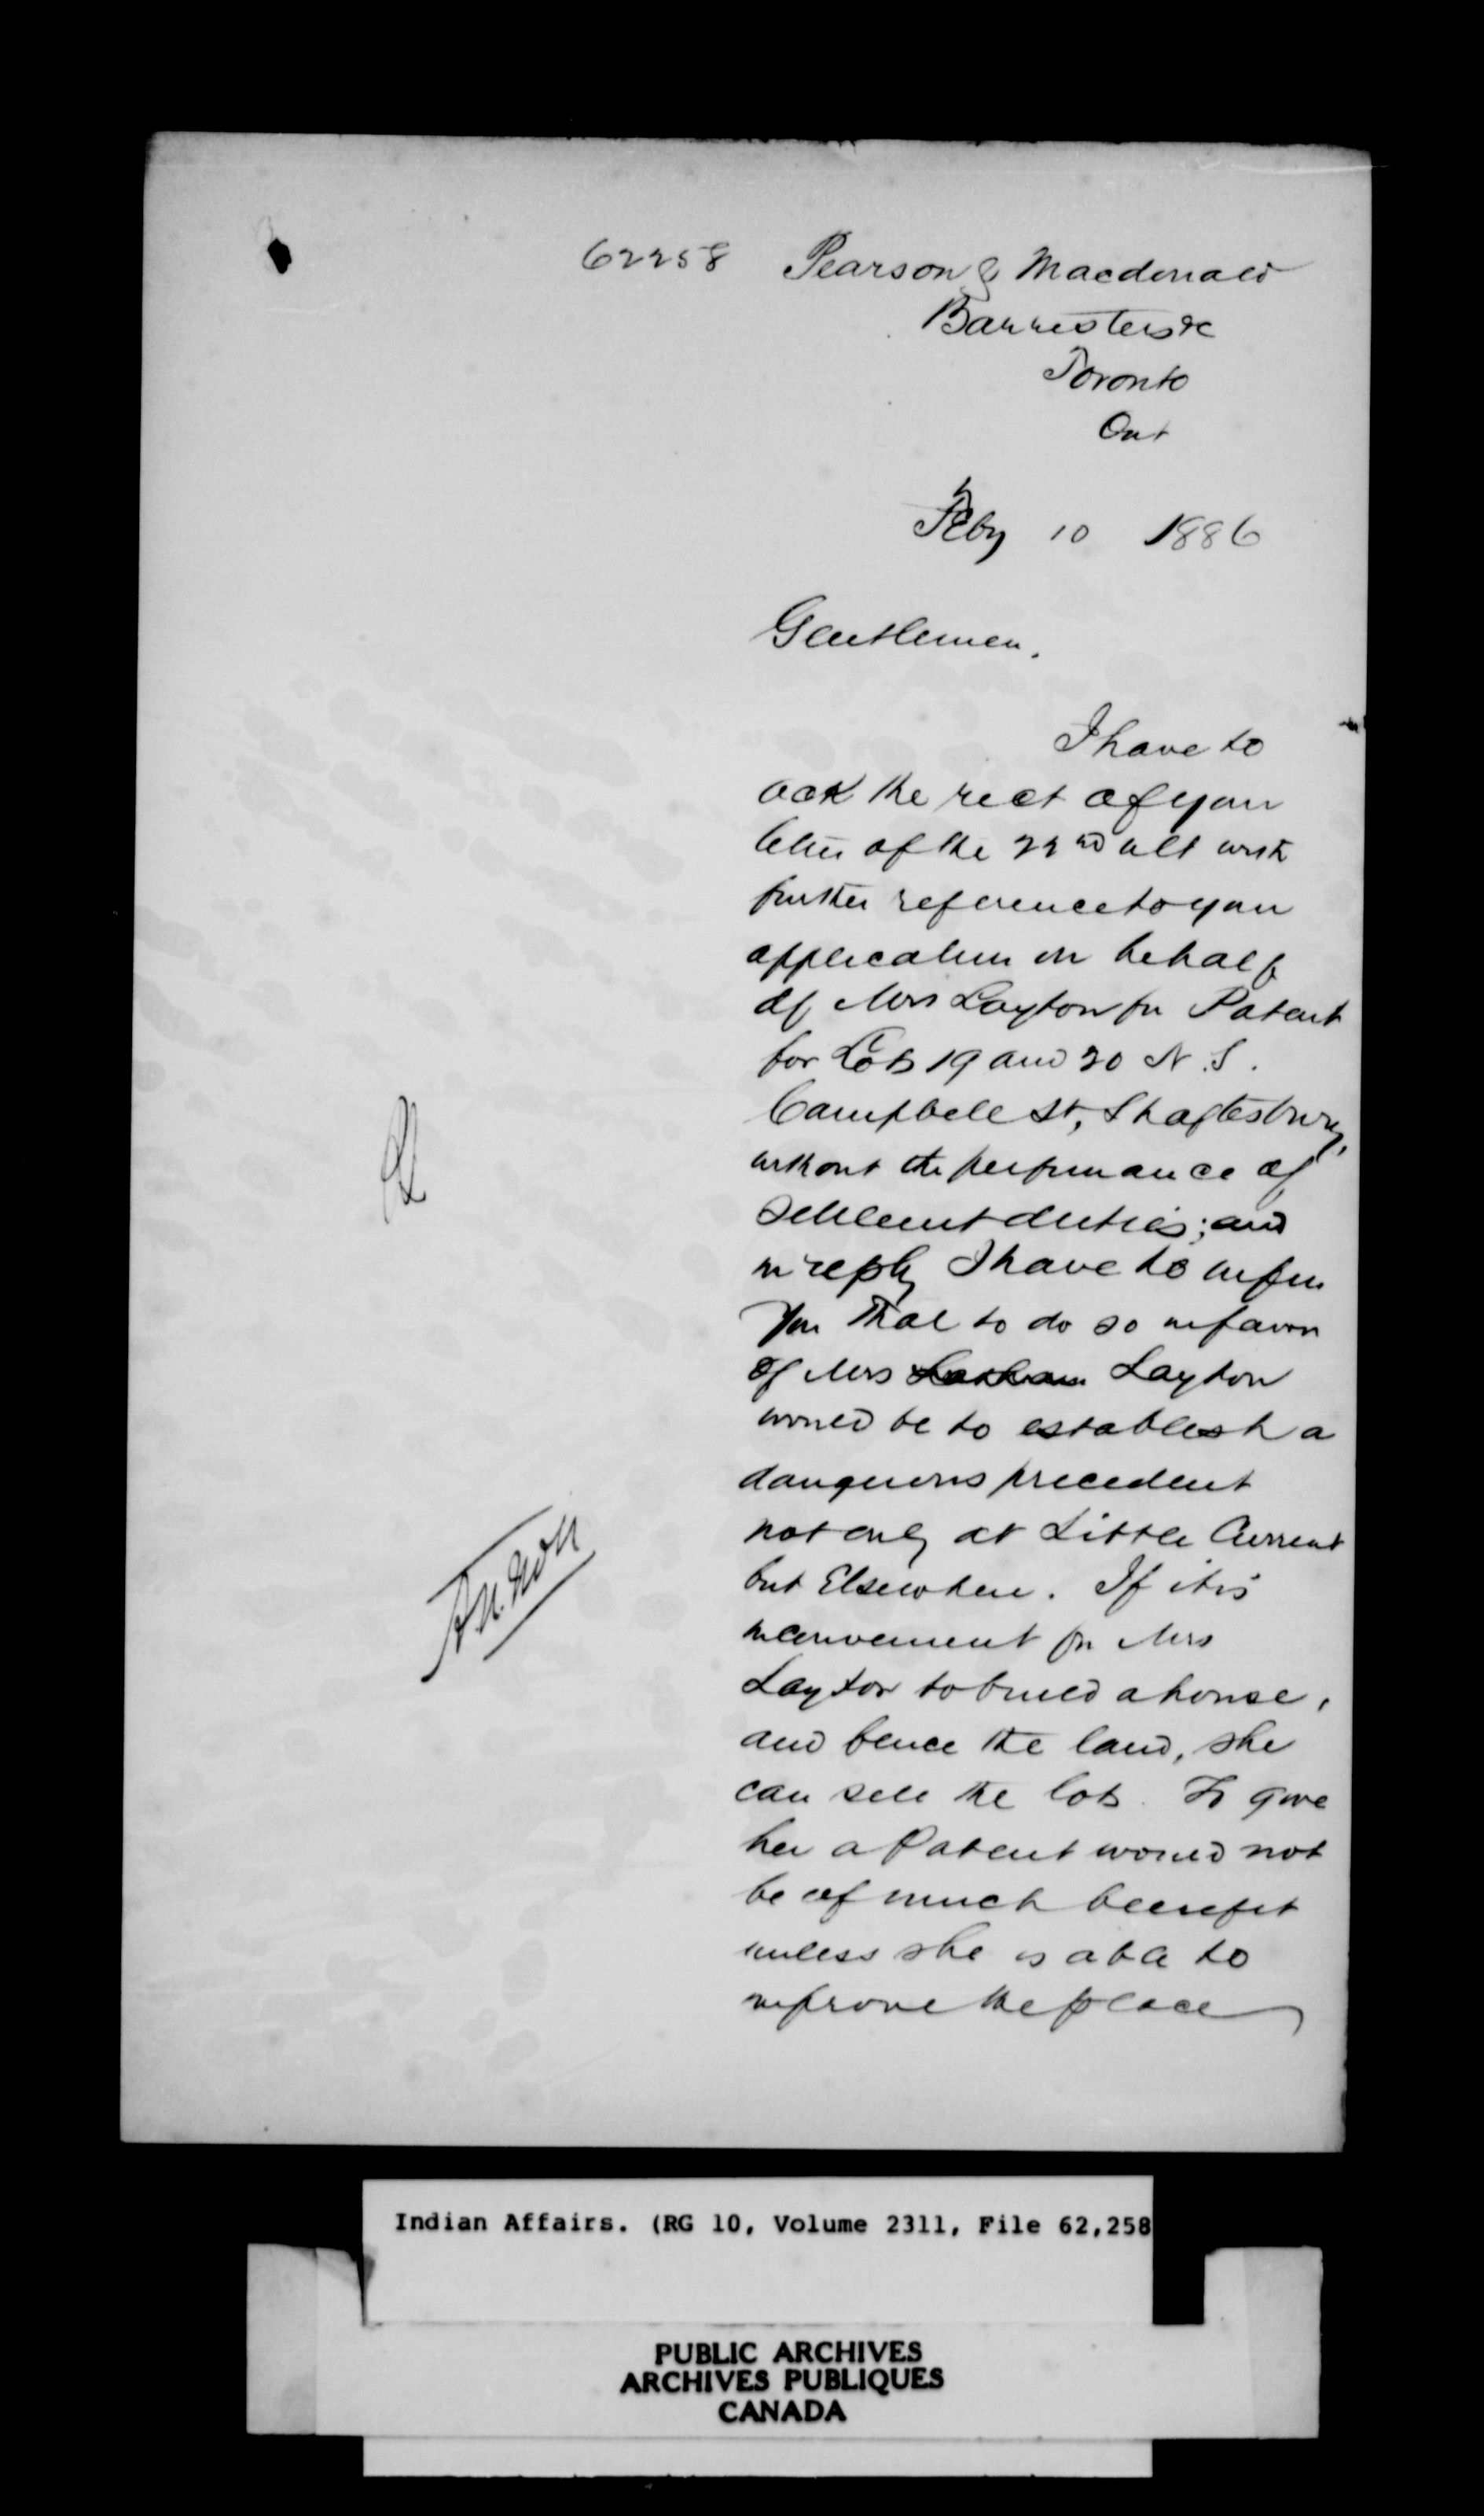 62258 Pearson & Macdonald
Barristers &c
Toronto
Ont
Feby 10 1886
Gentlemen.
I have to
ack the rect of your
letter of the 22nd ult with
further reference to your
application on behalf
of Mrs Layton for Patent
for Lots 19 and 20 N.S.
Campbell St, Shaftesbury,
without the performance of
settlement duties; and
in reply I have to inform
you that to do so in favor
of Mrs Layton
would be to establish a
dangerous precedent
not only at Little Current
but Elsewhere. If it is
inconvenient for Mrs
Layton to build a house,
and fence the land, she
can sell the lots. To give
her a Patent would not
be of much benefit
unless she is able to
improve the place
Indian Affairs. (RG 10, Volume 2311, File 62,258
PUBLIC ARCHIVES
ARCHIVES PUBLIQUES
CANADA